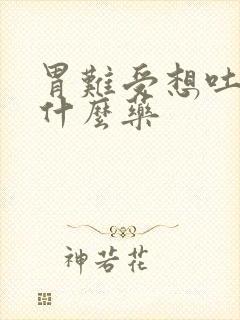 胃難受想吐
什麼藥
神若花